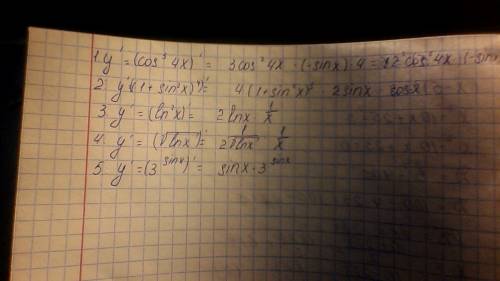 1. y' = (cos³4x)' = 3cos²4x · (-sinx) · 4 = 12 cos²4x · (-sin
2. y'((1 + sin²x)⁴)' = 4(1 + sin²x)³ · 2sinx · cosx
3. y' = (ln²x) = 2lnx · 1/x
4. y' = (√lnx)' = 1/2√lnx · 1/x
5. y' = (3^sinx)' = sinx · 3^sinx